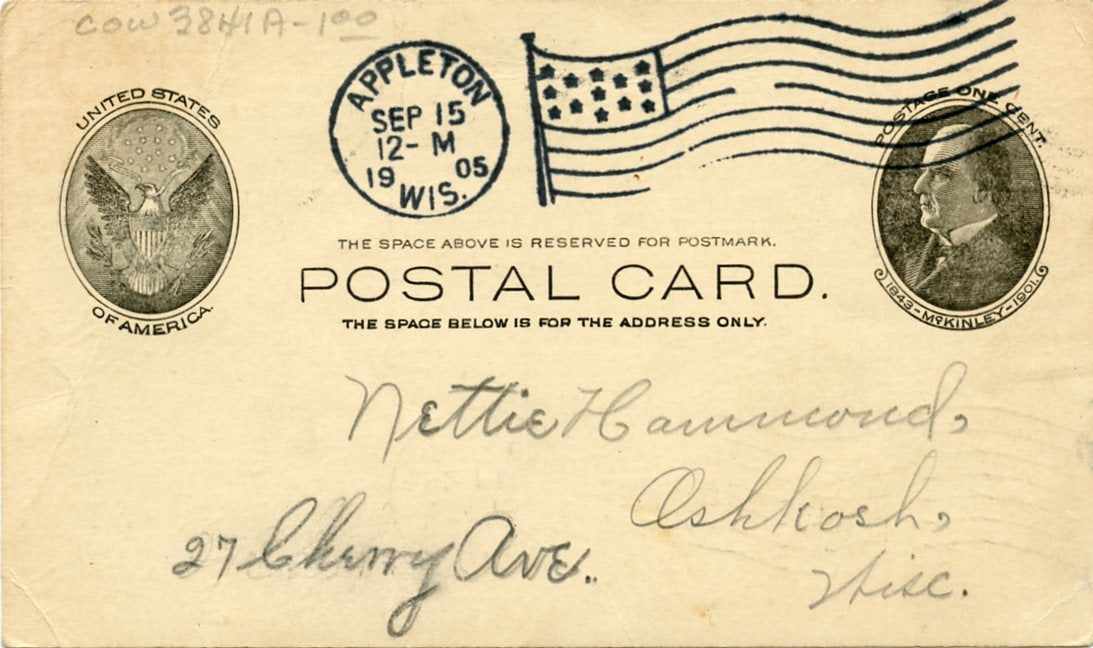 COW 3841A-1⁰⁰
UNITED STATES
OF AMERICA.
APPLETON
SEP 15
12- M
19 05
WIS.
POSTAGE ONE CENT.
1843-McKINLEY-1901.
THE SPACE ABOVE IS RESERVED FOR POSTMARK.
POSTAL CARD.
THE SPACE BELOW IS FOR THE ADDRESS ONLY.
Nettie Hammond,
Oshkosh,
27 Cherry Ave.
Wisc.